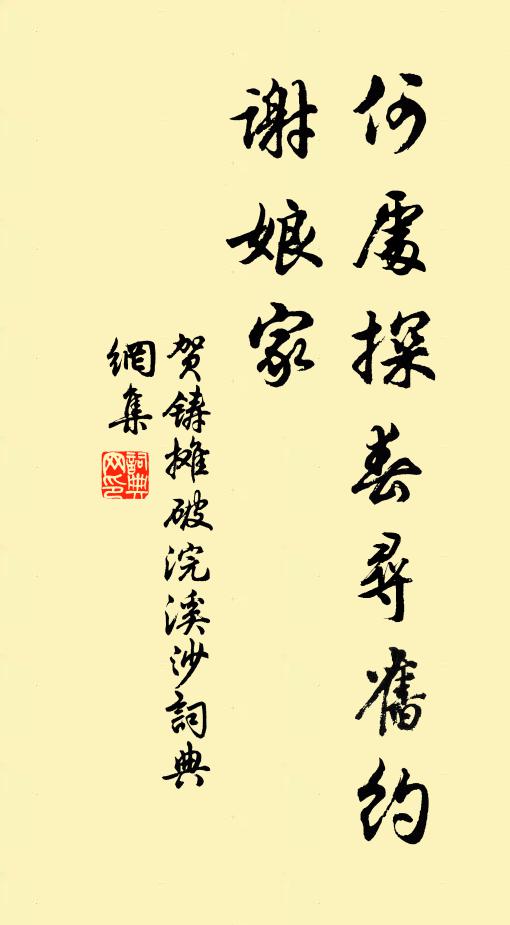 何處探春尋舊约
謝娘家
贺鑄攤破浣溪沙詞典
網集
詞典
网印